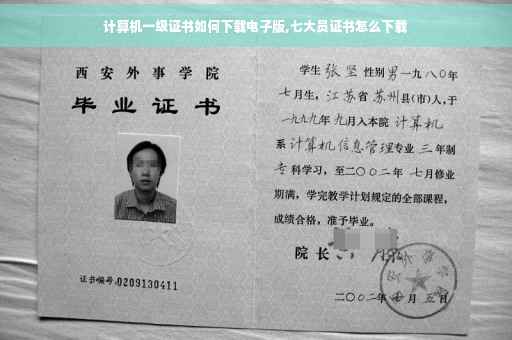 计算机一级证书如何下载电子版,七大员证书怎么下载
西安外事学院
毕业证书
证书编号:0209130411
学生 张坚 性别 男 一九八0年
七月生, 江苏省 苏州县(市)人,于
一九九九年 九月入本院 计算机
系 计算机信息管理专业 三 年制
专科学习, 至二〇〇二年 七月修业
期满, 学完教学计划规定的全部课程,
成绩合格, 准予毕业。
院长
二〇〇二年 月 五日